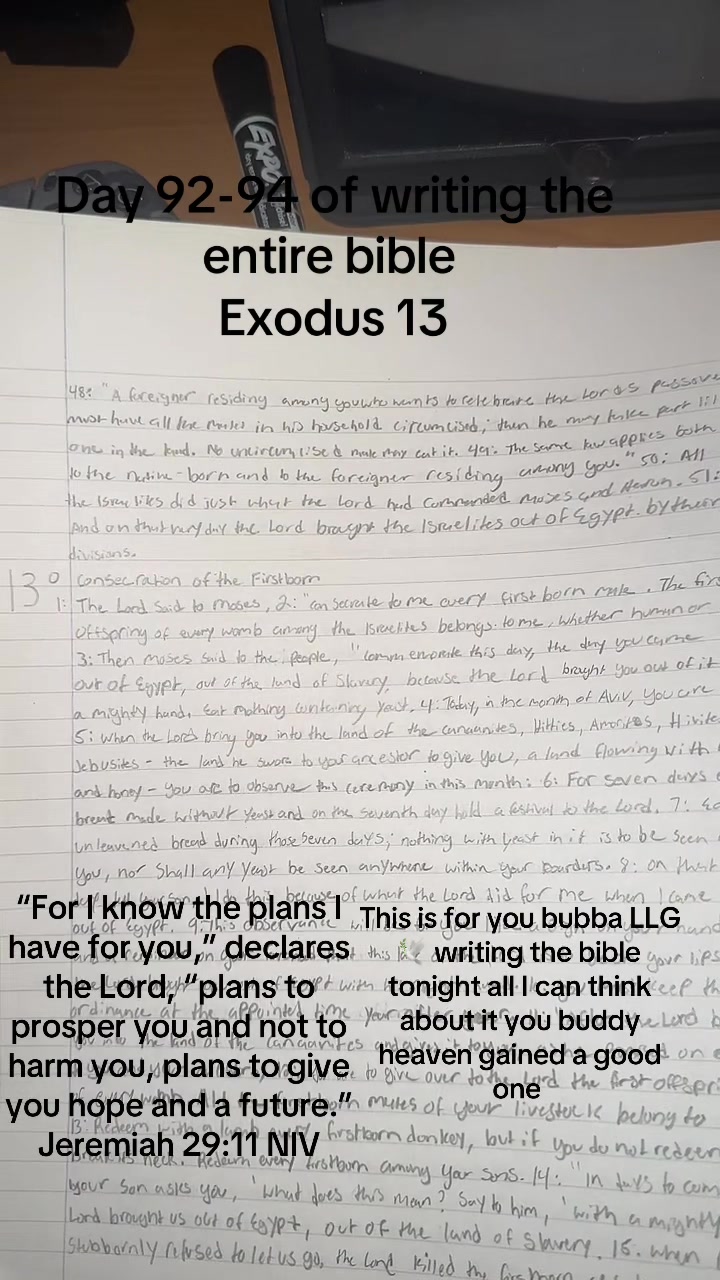 EXPO
Day 92-94 of writing the
entire bible
Exodus 13
48: "A foreigner residing among you who wants to celebrate the Lord's passove
must have all the males in his household circumcised; then he may take part lil
one in the land. No uncircumcised male may eat it. 49: The same law applies both
to the native-born and to the foreigner residing among you." 50: All
the Israelites did just what the Lord had commanded moses and Aaron. 51:
And on that very day the Lord brought the Israelites out of Egypt by their
divisions.
13° Consecration of the Firstborn
1: The Lord said to moses, 2: "consecrate to me every first born male. The firs
offspring of every womb among the Israelites belongs to me, whether human or
3: Then moses said to the people, "commemorate this day, the day you came
out of Egypt, out of the land of slavery, because the Lord brought you out of it
a mighty hand. Eat nothing containing yeast. 4: Today, in the month of Aviv, you are
5: When the Lord bring you into the land of the canaanites, Hitties, Amorites, Hivite
Jebusites - the land he swore to your ancestor to give you, a land flowing with
and honey - you are to observe this ceremony in this month: 6: For seven days
bread made without yeast and on the seventh day hold a festival to the Lord. 7:
unleavened bread during those seven days; nothing with yeast in it is to be seen
you, nor shall any yeast be seen anywhere within your boarders. 8: on that
because of what the Lord did for me when I came
out of Egypt. 9: This observance
your lips
ordinance at the appointed time year after
the Lord b
into the land of the canaanites
to give over to the Lord the first offspri
males of your livestock belong to
13: Redeem with a lamb every firstborn donkey, but if you do not redeem
break its neck. Redeem every firstborn among your sons. 14: "In days to com
your son asks you, 'what does this mean? Say to him, 'with a mighty
Lord brought us out of Egypt, out of the land of slavery. 15. when
stubbornly refused to let us go, the Lord killed the
“For I know the plans I
have for you,” declares
the Lord, “plans to
prosper you and not to
harm you, plans to give
you hope and a future.”
Jeremiah 29:11 NIV
This is for you bubba LLG
🌿🕊️ writing the bible
tonight all I can think
about it you buddy
heaven gained a good
one